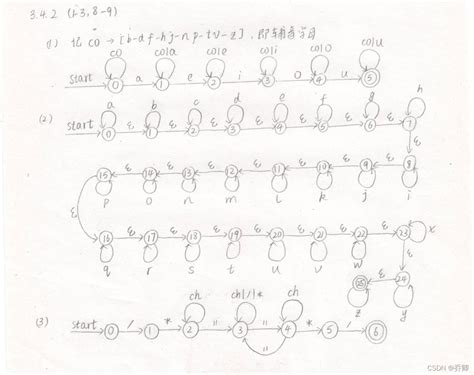 3.4.2 (1-3, 8-9)
(1) 记 c0 → [b-df-hj-np-tv-z], 即辅音字母
c0 c0|a c0|e c0|i c0|o c0|u
start 0 a 1 e 2 i 3 o 4 u 5
a b c d e f g h
(2) start 0 ε 1 ε 2 ε 3 ε 4 ε 5 ε 6 ε 7
ε
15 ε 14 ε 13 ε 12 ε 11 ε 10 ε 9 ε 8
p o n m l k j i
ε
16 ε 17 ε 18 ε 19 ε 20 ε 21 ε 22 ε 23 x
q r s t u v w ε
25 ε 24
z y
ch ch|/|* ch
(3) start 0 / 1 * 2 " 3 " 4 * 5 / 6
"
CSDN